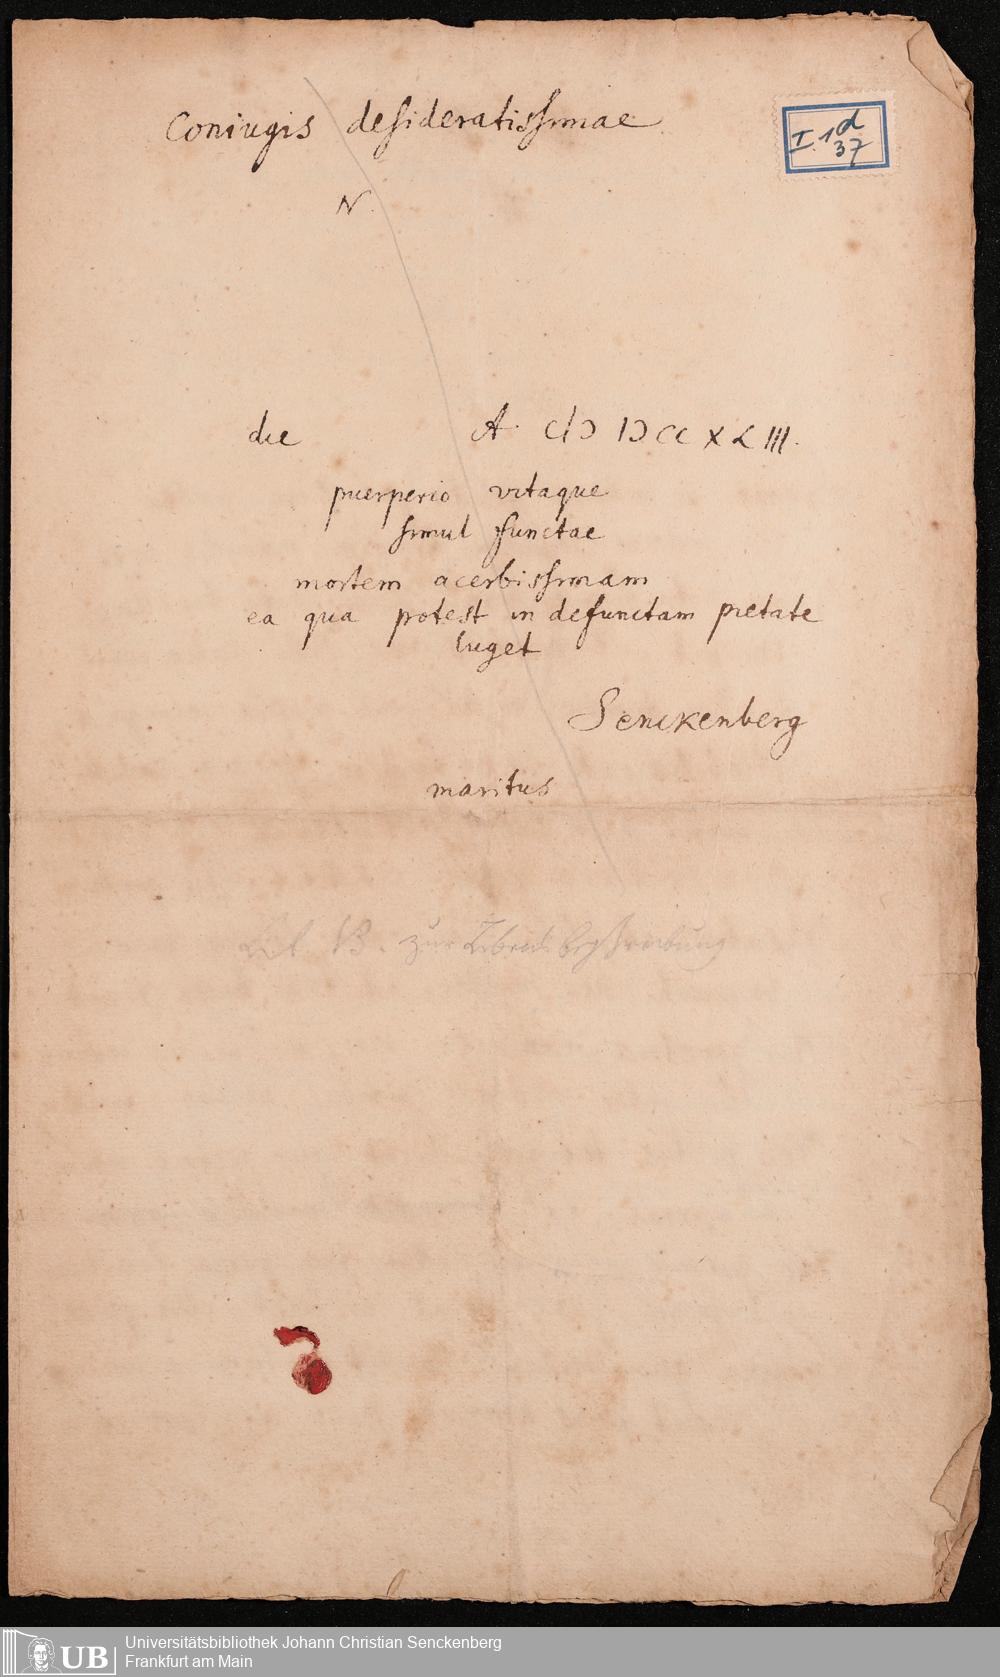 Coniugis desideratissimae
I. 1 d
37
N.
die A. CIƆ IƆCC XLIII.
puerperio vitaque
simul functae
mortem acerbissimam
ea qua potest in defunctam pietate
luget
Senckenberg
maritus
Lit. B. zur Lebensbeschreibung
UB Universitätsbibliothek Johann Christian Senckenberg
Frankfurt am Main